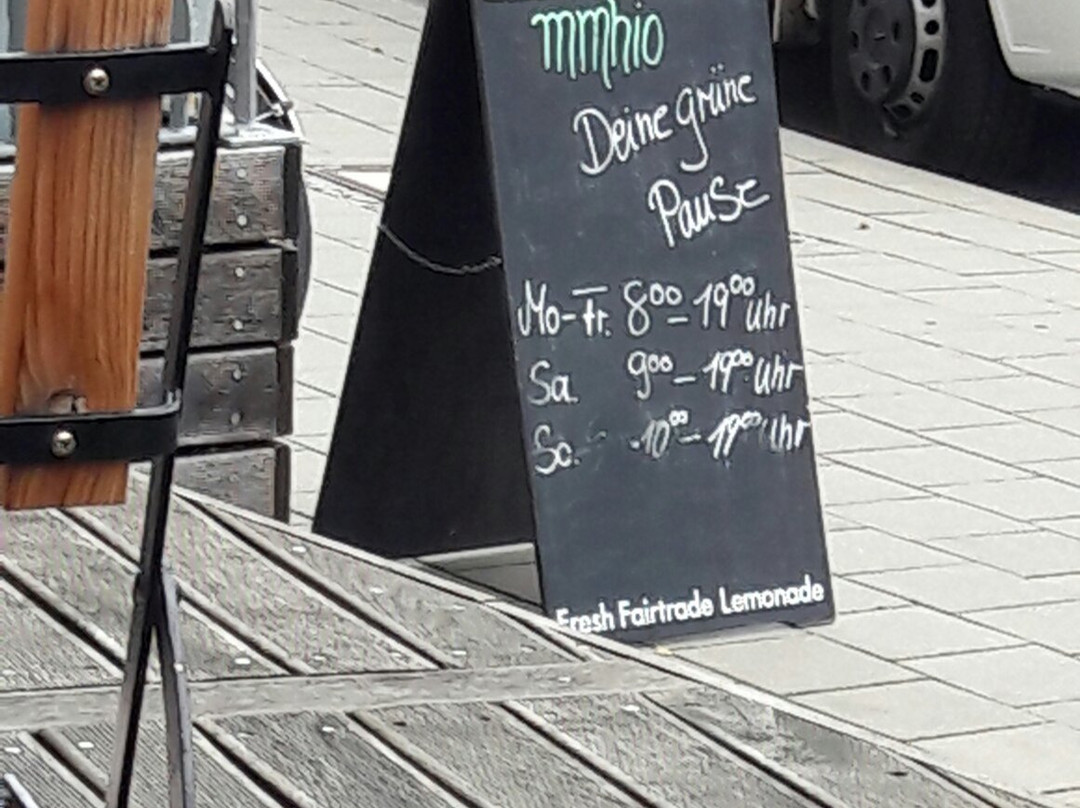 mmhio
Deine grüne
Pause
Mo-Fr. 8⁰⁰-19⁰⁰ Uhr
Sa. 9⁰⁰-19⁰⁰ Uhr
So. 10⁰⁰-19⁰⁰ Uhr
Fresh Fairtrade Lemonade